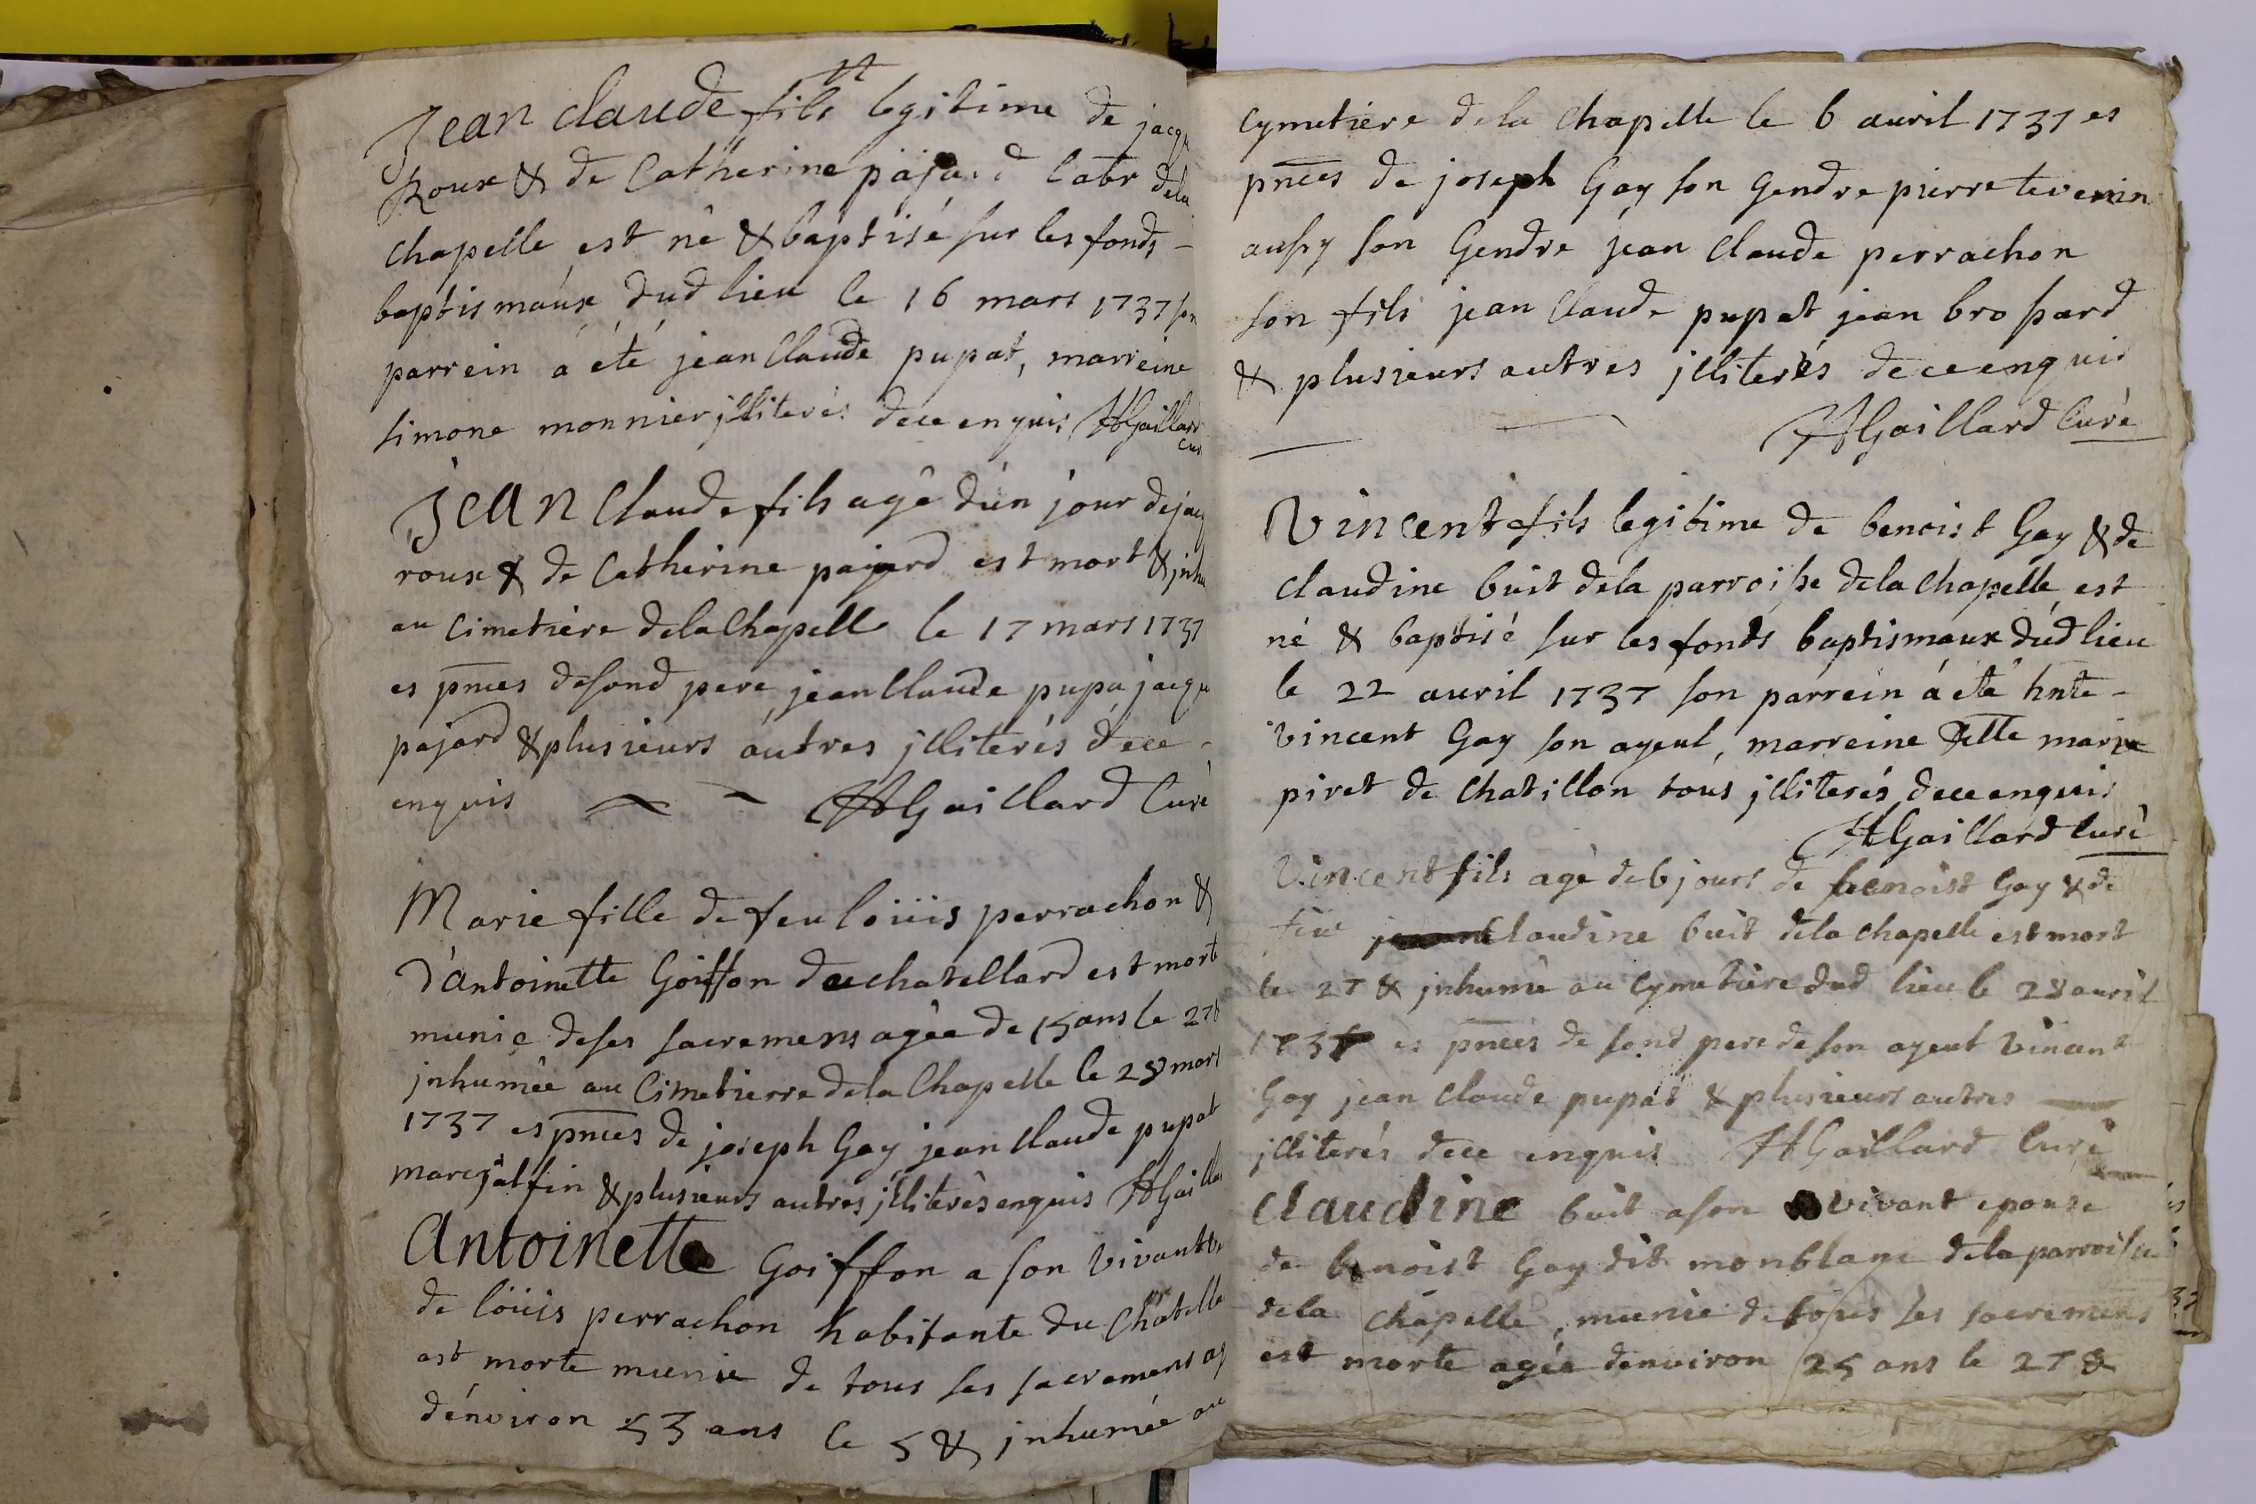 Jean claude fils legitime de jacq
Roux & de Catherine pajard labr dela
chapelle est né & baptisé sur les fonds
baptismaux dud lieu le 16 mars 1737 son
parrein a été jean Claude pupat, marreine
simone monnier jlliterés dece enquis HGaillard
cur
Jean Claude fils agé d'un jour de jacq
roux & de Catherine pajard est mort & jnhu
au Cimetiere dela Chapelle le 17 mars 1737
es pnces desond pere, jean Claude pupa jacqu
pajard & plusieurs autres jlliterés dece
enquis HGaillard Curé
Marie fille de feu loüis perrachon &
d'antoinette Goiffon de chatellard est morte
munie deses sacremens agée de 15 ans le 27 &
jnhumée au Cimetierre dela Chapelle le 28 mars
1737 es pnces de joseph Gay jean Claude pupat
marc jalfin & plusieurs autres jlliterés enquis HGaillar
Antoinette Goiffon a son vivant
de loüis perrachon habitante du Chatella
est morte munie de tous ses sacremens ag
d'énviron 53 ans le 5 & jnhumée au
Cymetiere dela Chapelle le 6 auril 1737 es
pnces de joseph Gay son Gendre pierre tevenin
aussy son Gendre jean Claude perrachon
son fils jean Claude pupat jean brossard
& plusieurs autres jlliterés dece enquis
HGaillard Curé
Vincent fils legitime de benoist Gay & de
claudine buit dela parroisse dela Chapelle est
né & baptisé sur les fonds baptismaux dud lieu
le 22 auril 1737 son parrein á été hnte
vincent Gay son ayeul, marreine dette marie
piret de Chatillon tous jlliterés dece enquis
HGaillard Curé
Vincent fils agé de 6 jours de benoist Gay & de
Claudine buit dela chapelle est mort
le 27 & jnhumé au Cymetiere dud lieu le 28 auril
1737 es pnces de sond pere de son ayeul vincent
Gay jean Claude pupat & plusieurs autres
jlliterés dece enquis HGaillard Curé
Claudine buit a son vivant epouse
de benoist Gay dit monblanc dela parroisse
dela Chapelle, munie de tous ses sacremens
est morte agée denviron 25 ans le 27 &